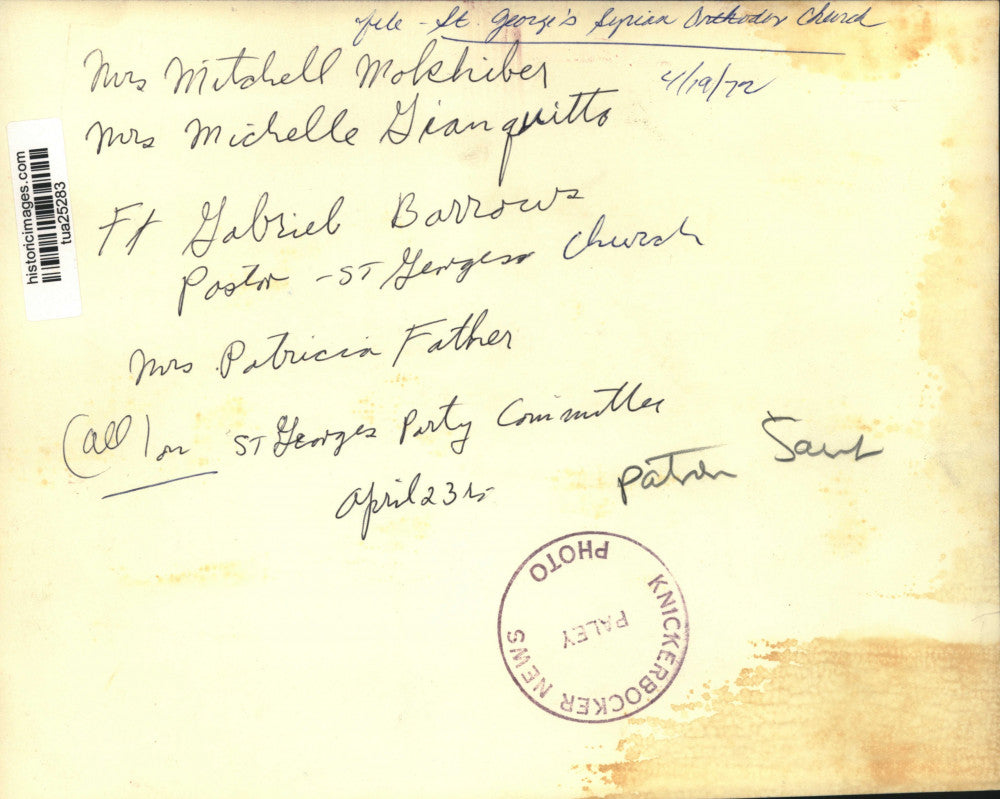 file - St. George's Syrian Orthodox Church
Mrs Mitchell Mokhiber
4/19/72
Mrs Michelle Gianquitto
Ft Gabriel Barrows
Pastor - ST Georges Church
Mrs Patricia Father
(all) on ST Georges Party Committee
April 23rd
patron Saint
historicimages.com
tua25283
KNICKERBOCKER NEWS
PHOTO
PALEY